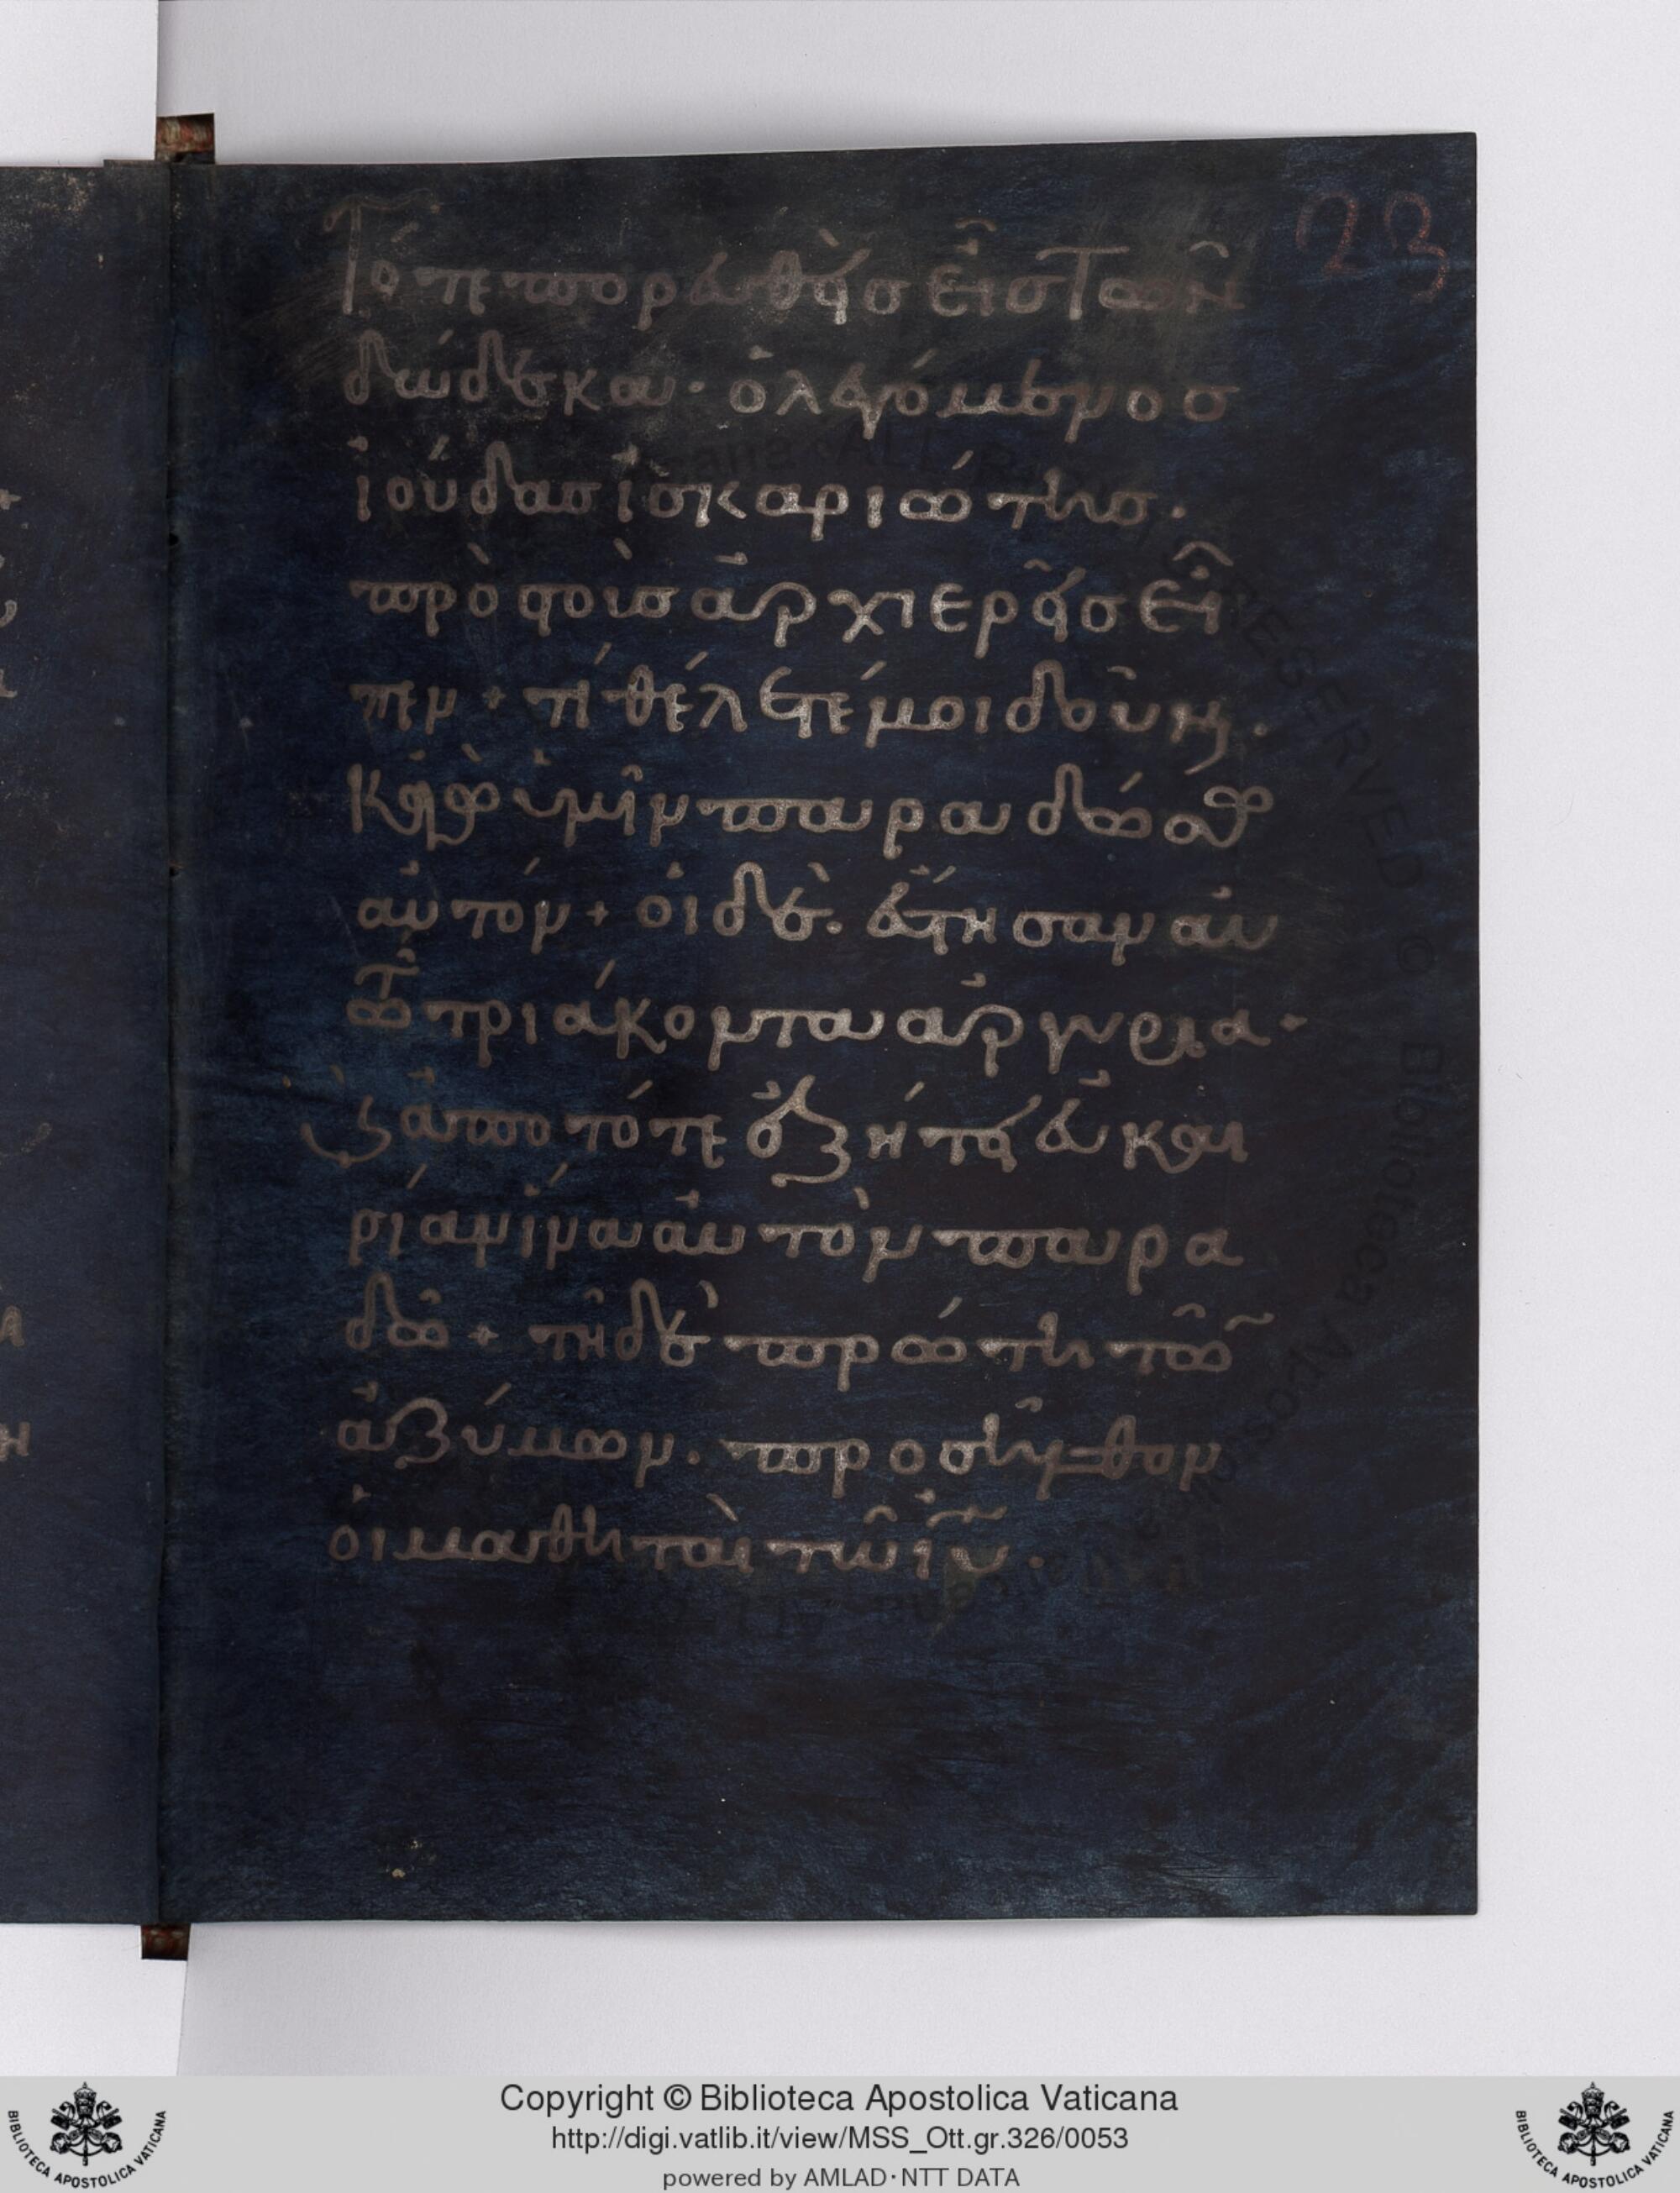 23
Τότε πορευθεὶς εἷς τῶν
δώδεκα· ὁ λεγόμενος
ἰούδας ἰσκαριώτης.
πρὸς τοὺς ἀρχιερεῖς εἶ
πεν + τί θέλετέ μοι δοῦναι.
κἀγὼ ὑμῖν παραδώσω
αὐτόν + οἱ δὲ. ἔστησαν αὐ
τῶ τριάκοντα ἀργύρια·
καὶ ἀπὸ τότε ἐζήτει εὐκαι
ρίαν ἵνα αὐτὸν παρα
δῶ + τῆ δὲ πρώτη τῶν
ἀζύμων. προσῆλθον
οἱ μαθηταὶ τοῦ ἰῦ.
Copyright © Biblioteca Apostolica Vaticana
http://digi.vatlib.it/view/MSS_Ott.gr.326/0053
powered by AMLAD·NTT DATA
BIBLIOTECA APOSTOLICA VATICANA
BIBLIOTECA APOSTOLICA VATICANA